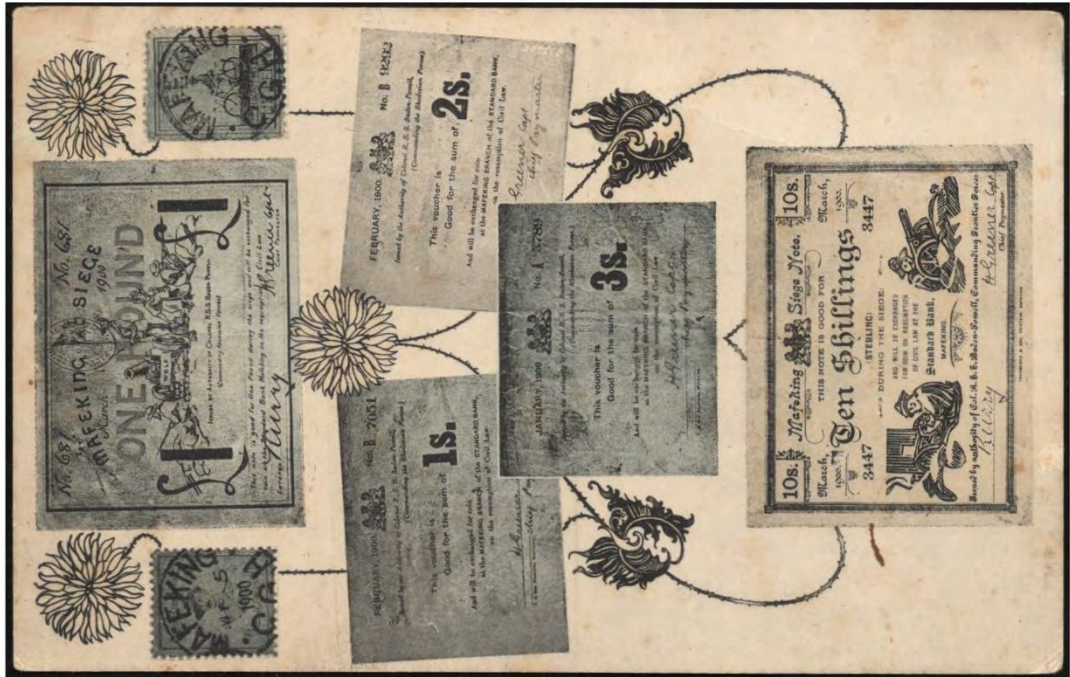 MAFEKING
C.G.H.
No. 681
No. 681
MAFEKING SIEGE
March 1900
ONE POUND
ISSUED BY AUTHORITY OF COLONEL R.S.S. Baden-Powell
(Commanding Frontier Forces)
This note is good for One Pound during the siege and will be exchanged for
coin at the Standard Bank Mafeking on the resumption of Civil Law
H Greener Capt
Chief Paymaster
R Urry
MAFEKING
1900
C.G.H
FEBRUARY, 1900.
No. B 9892
Issued by the Authority of Colonel R. S. S. Baden-Powell,
(Commanding the Rhodesian Forces)
This voucher is
Good for the sum of 2s.
And will be exchanged for coin
at the MAFEKING BRANCH of the STANDARD BANK,
on the resumption of Civil Law.
Greener Capt
Chief Paymaster
FEBRUARY, 1900.
No. B 7651
Issued by the Authority of Colonel R. S. S. Baden-Powell,
(Commanding the Rhodesian Forces)
This voucher is
Good for the sum of 1s.
And will be exchanged for coin
at the MAFEKING BRANCH of the STANDARD BANK,
on the resumption of Civil Law
H Greener
JANUARY, 1900
No. A 5789
Issued by the Authority of Colonel R. S. S. Baden-Powell,
(Commanding the Rhodesian Forces)
This voucher is
Good for the sum of 3s.
And will be exchanged for coin
at the MAFEKING BRANCH of the STANDARD BANK,
on the resumption of Civil Law
H Greener Captn
Chief Paymaster
10s. Mafeking Siege Note. 10s.
March, 1900.
THIS NOTE IS GOOD FOR
March, 1900.
Ten Shillings
3447
STERLING
3447
DURING THE SIEGE
AND WILL BE EXCHANGED
FOR COIN ON RESUMPTION
OF CIVIL LAW AT THE
Standard Bank,
MAFEKING
Issued by authority of Col. R. S. S. Baden-Powell, Commanding Frontier Forces
R Urry
H Greener Capt
Chief Paymaster